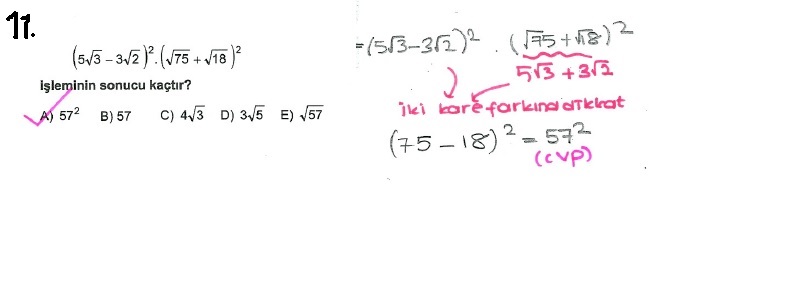 11.
(5√3 − 3√2)² . (√75 + √18)²
işleminin sonucu kaçtır?
A) 57² B) 57 C) 4√3 D) 3√5 E) √57
= (5√3 − 3√2)² . (√75 + √18)²
5√3 + 3√2
iki kare farkına dikkat
(75 − 18)² = 57²
(cvp)